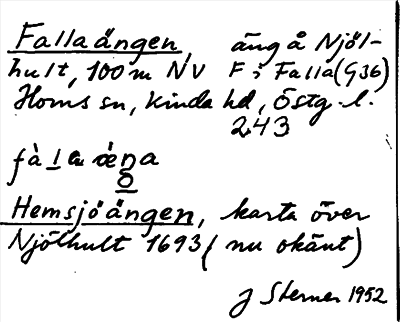 Fallaängen, äng å Njöl-
hult, 100 m NV F; Falla (936)
Horns sn, Kinda hd, Östg. l.
243
fà l a æ̀ŋa
o
Hemsjöängen, karta över
Njölhult 1693 (nu okänt)
J Sterner 1952